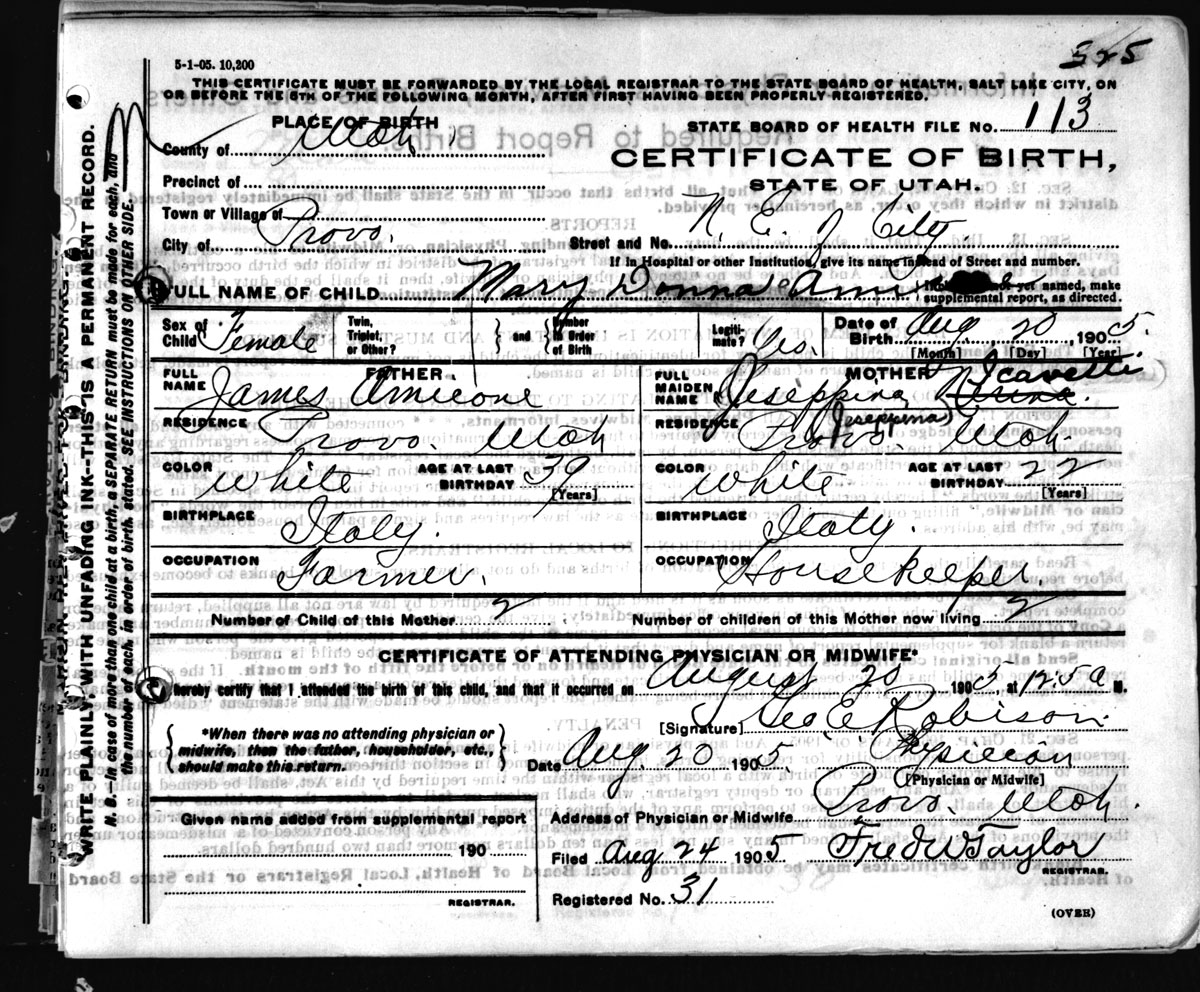 525
5-1-05. 10,200
THIS CERTIFICATE MUST BE FORWARDED BY THE LOCAL REGISTRAR TO THE STATE BOARD OF HEALTH, SALT LAKE CITY, ON
OR BEFORE THE 5TH OF THE FOLLOWING MONTH, AFTER FIRST HAVING BEEN PROPERLY REGISTERED.
PLACE OF BIRTH
STATE BOARD OF HEALTH FILE NO. 113
County of Utah
CERTIFICATE OF BIRTH,
Precinct of
STATE OF UTAH.
Town or Village of
City of Provo.
Street and No. N. E. of City.
If in Hospital or other Institution, give its name instead of Street and number.
FULL NAME OF CHILD Mary Donna
not yet named, make
supplemental report, as directed.
Sex of Child Female
Twin, Triplet, or Other?
and
Number in Order of Birth
Legitimate? Yes.
Date of Birth Aug 20, 1905.
[Month] [Day] [Year]
FATHER.
FULL NAME James Amicone
RESIDENCE Provo. Utah
COLOR White
AGE AT LAST BIRTHDAY
[Years]
BIRTHPLACE Italy.
OCCUPATION Farmer.
MOTHER
FULL MAIDEN NAME Joseppina
(Joseppina)
RESIDENCE Provo Utah.
COLOR White
AGE AT LAST BIRTHDAY 22
[Years]
BIRTHPLACE Italy.
OCCUPATION Housekeeper.
Number of Child of this Mother 2
Number of children of this Mother now living 2
CERTIFICATE OF ATTENDING PHYSICIAN OR MIDWIFE*
I hereby certify that I attended the birth of this child, and that it occurred on August 20 1905 at 12.5 a M.
[Signature] Geo E Robison
*When there was no attending physician or
midwife, then the father, householder, etc.,
should make this return.
Date Aug 20 1905
Physician
[Physician or Midwife]
Given name added from supplemental report
190
REGISTRAR.
Address of Physician or Midwife Provo. Utah.
Filed Aug 24 1905 Fred W Taylor
REGISTRAR.
Registered No. 31
(OVER)
WRITE PLAINLY WITH UNFADING INK--THIS IS A PERMANENT RECORD.
N. B.--In case of more than one child at a birth, a SEPARATE RETURN must be made for each, and
the number of each, in order of birth, stated. SEE INSTRUCTIONS ON OTHER SIDE.